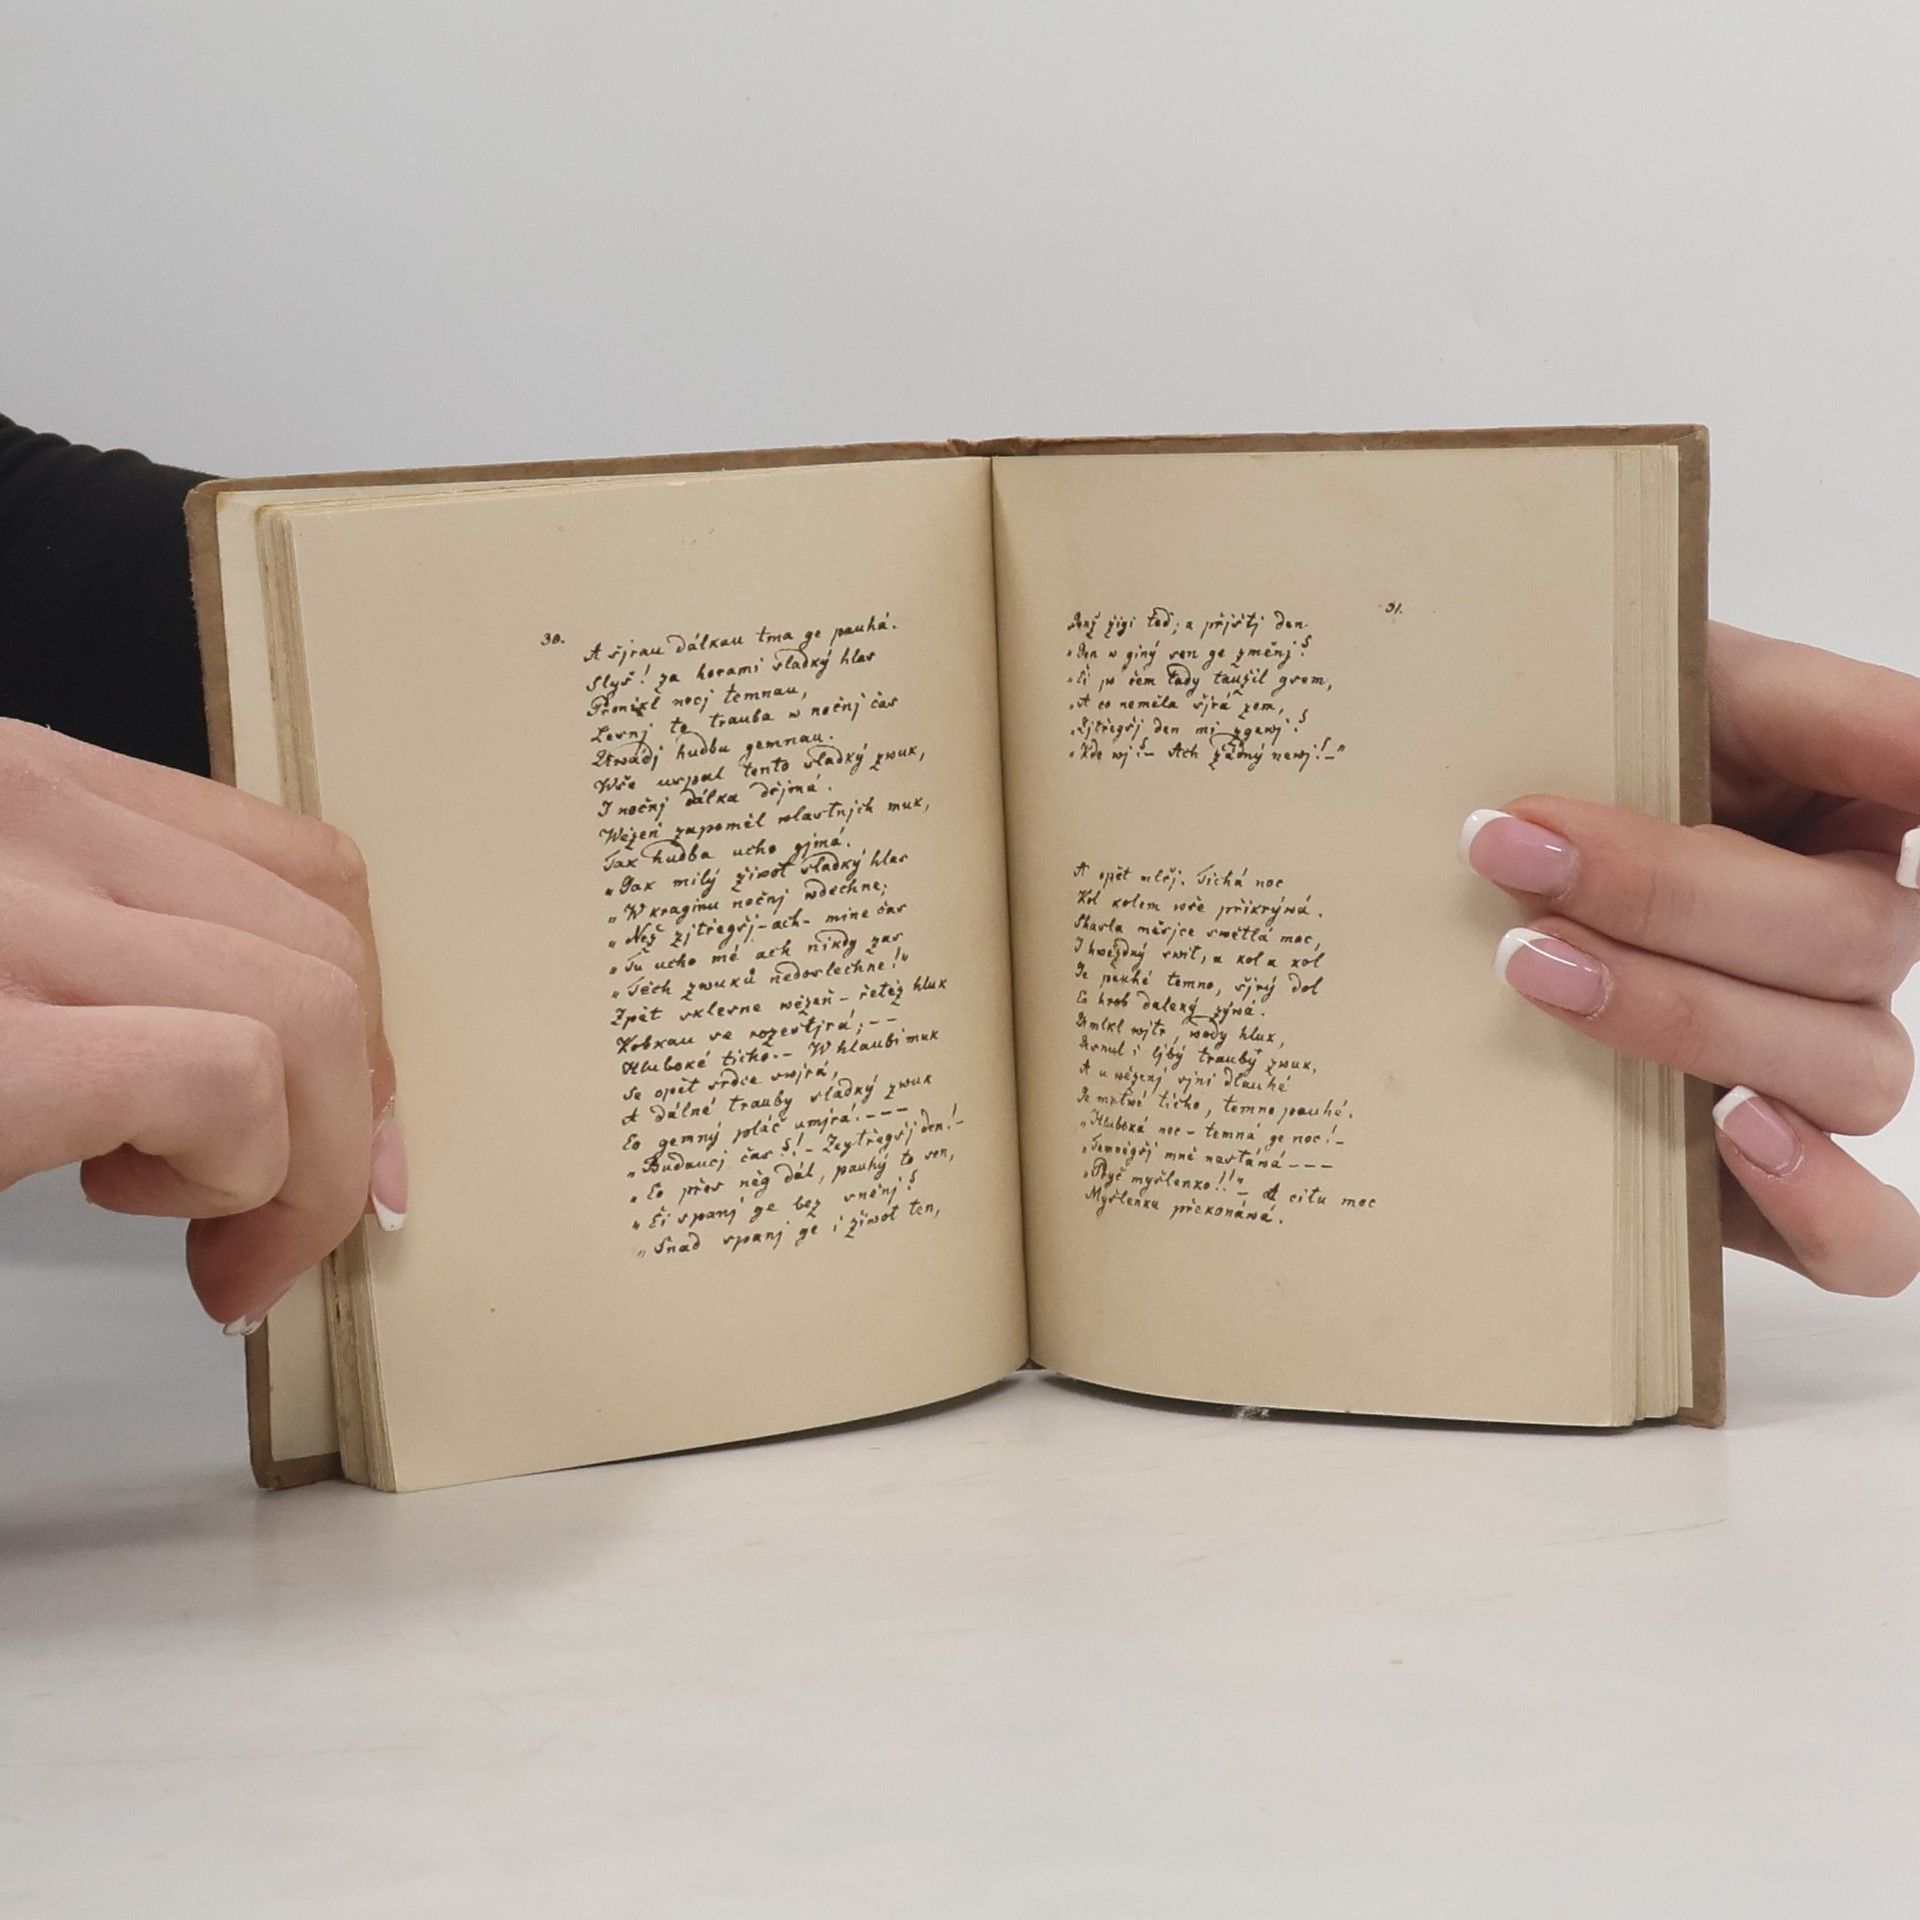 30.
A ssjrau dálkau tma ge pauhá.
Slyš! za horami sladký hlas
Pronikl nocj temnau,
Lesnj to trauba w nočnj čas
Uwádj hudbu gemnau.
Wše uspal tento sladký zwuk,
I nočnj dálka dřjmá.
Wězeň zapoměl wlastnjch muk,
Tak hudba ucho gjmá.
„Gak milý žiwot sladký hlas
„W kraginu nočnj wdechne;
„Než zjtřegšj – ach – mine čas
„Tu ucho mé ach nikdy zas
„Těch zwuků nedoslechne!"
Zpět sklesne wězeň – řetěz hluk
Kobkau se rozestjrá; – –
Hluboké ticho. – W hlaubi muk
Se opět srdce swjrá,
A dálné trauby sladký zwuk
Co gemný pláč umjrá. – – –
„Budaucj čas?! – Zeytřegšj den! –
„Co přes něg dál, pauhý to sen,
„Či spanj ge bez sněnj?
„Snad spanj ge i žiwot ten,
31.
„Genž žigi teď; a přjštj den
„Gen w giný sen ge změnj?
„Či po čem tady taužil gsem,
„A co neměla šjrá zem,
„Zjtřegšj den mi zgewj?
„Kdo wj? – Ach žádný newj! –"
A opět mlčj. Tichá noc
Kol kolem wše přikrýwá.
Shasla měsjce swětlá moc,
I hwězdný swit, a kol a kol
Ge pauhé temno, šjrý dol
Co hrob daleký zýwá.
Umlkl wjtr, wody hluk,
Usnul i ljbý trauby zwuk,
A u wězenj sjni dlauhé
Ge mrtwé ticho, temno pauhé.
„Hluboká noc – temná ge noc! –
„Temněgšj mně nastáwá – – –
„Pryč myšlenko!!" – A citu moc
Myšlenku překonáwá.